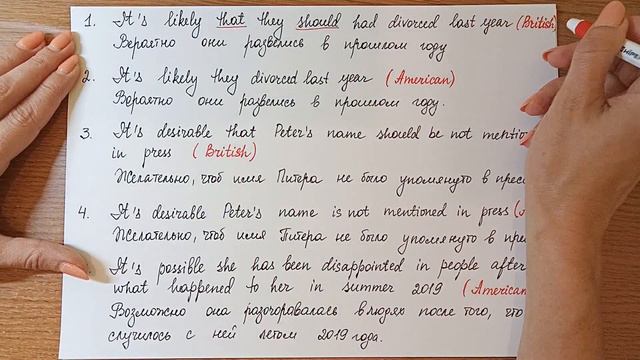 1. It's likely that they should had divorced last year (British
Вероятно они развелись в прошлом году
2. It's likely they divorced last year (American)
Вероятно они развелись в прошлом году.
3. It's desirable that Peter's name should be not
in press (British)
Желательно, чтоб имя Питера не было упомянуто в
4. It's desirable Peter's name is not mentioned in press
Желательно, чтоб имя Питера не было упомянуто в
It's possible she has been disappointed in people after
what happened to her in summer 2019 (American
Возможно она разочаровалась в людях после того, что
случилось с ней летом 2019 года.